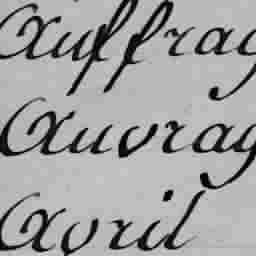 Auffrag
Auvrag
Avril